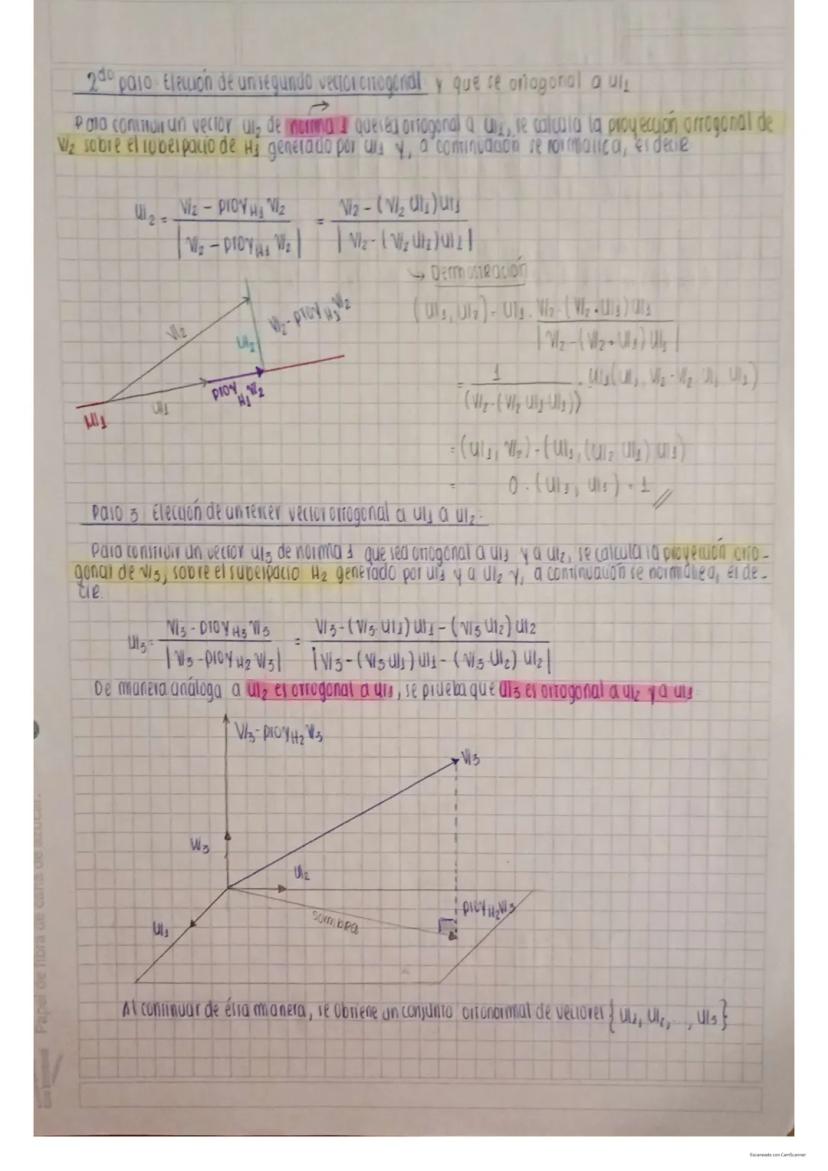 2do paso: Elección de un segundo vector ortogonal y que se ortogonal a u1
Para construir un vector u2 de norma 1 que sea ortogonal a u1, se calcula la proyección orrogonal de
V2 sobre el subespacio de H1 generado por u1 y, a continuación se normaliza, es decir
u2 = V2 - proy H1 V2 / |V2 - proy H1 V2| = V2 - (V2 · u1) u1 / |V2 - (V2 · u1) u1|
→ Demostración
(u1, u2) = u1 · V2 - (V2 · u1) u1 / |V2 - (V2 · u1) u1|
V2
V2 - proy H1 V2
u2
u1
proy H1 V2
= 1 /
= (u1, V2) - (u1, (u2 u1) u1)
= 0 · (u1, u1) = 1 //
Paso 3: Elección de un tercer vector orrogonal a u1 a u2.
Para construir un vector u3 de norma 1 que sea ortogonal a u1 y a u2, se calcula la proyección orto-
gonal de V3, sobre el subespacio H2 generado por u1 y a u2 y, a continuación se normaliza, es de-
cir.
u3 = V3 - proy H3 V3 / |V3 - proy H2 V3| = V3 - (V3 · u1) u1 - (V3 · u2) u2 / |V3 - (V3 · u1) u1 - (V3 · u2) u2|
De manera análoga a u2 es orrogonal a u1, se prueba que u3 es orrogonal a u2 y a u1
V3 - proy H2 V3
V3
u3
u2
proy H2 V3
sombra
u1
Al continuar de ésta manera, se obtiene un conjunto ortonormal de vectores {u1, u2, ..., us}
Papel de fibra de caña de azúcar.
Escaneado con CamScanner